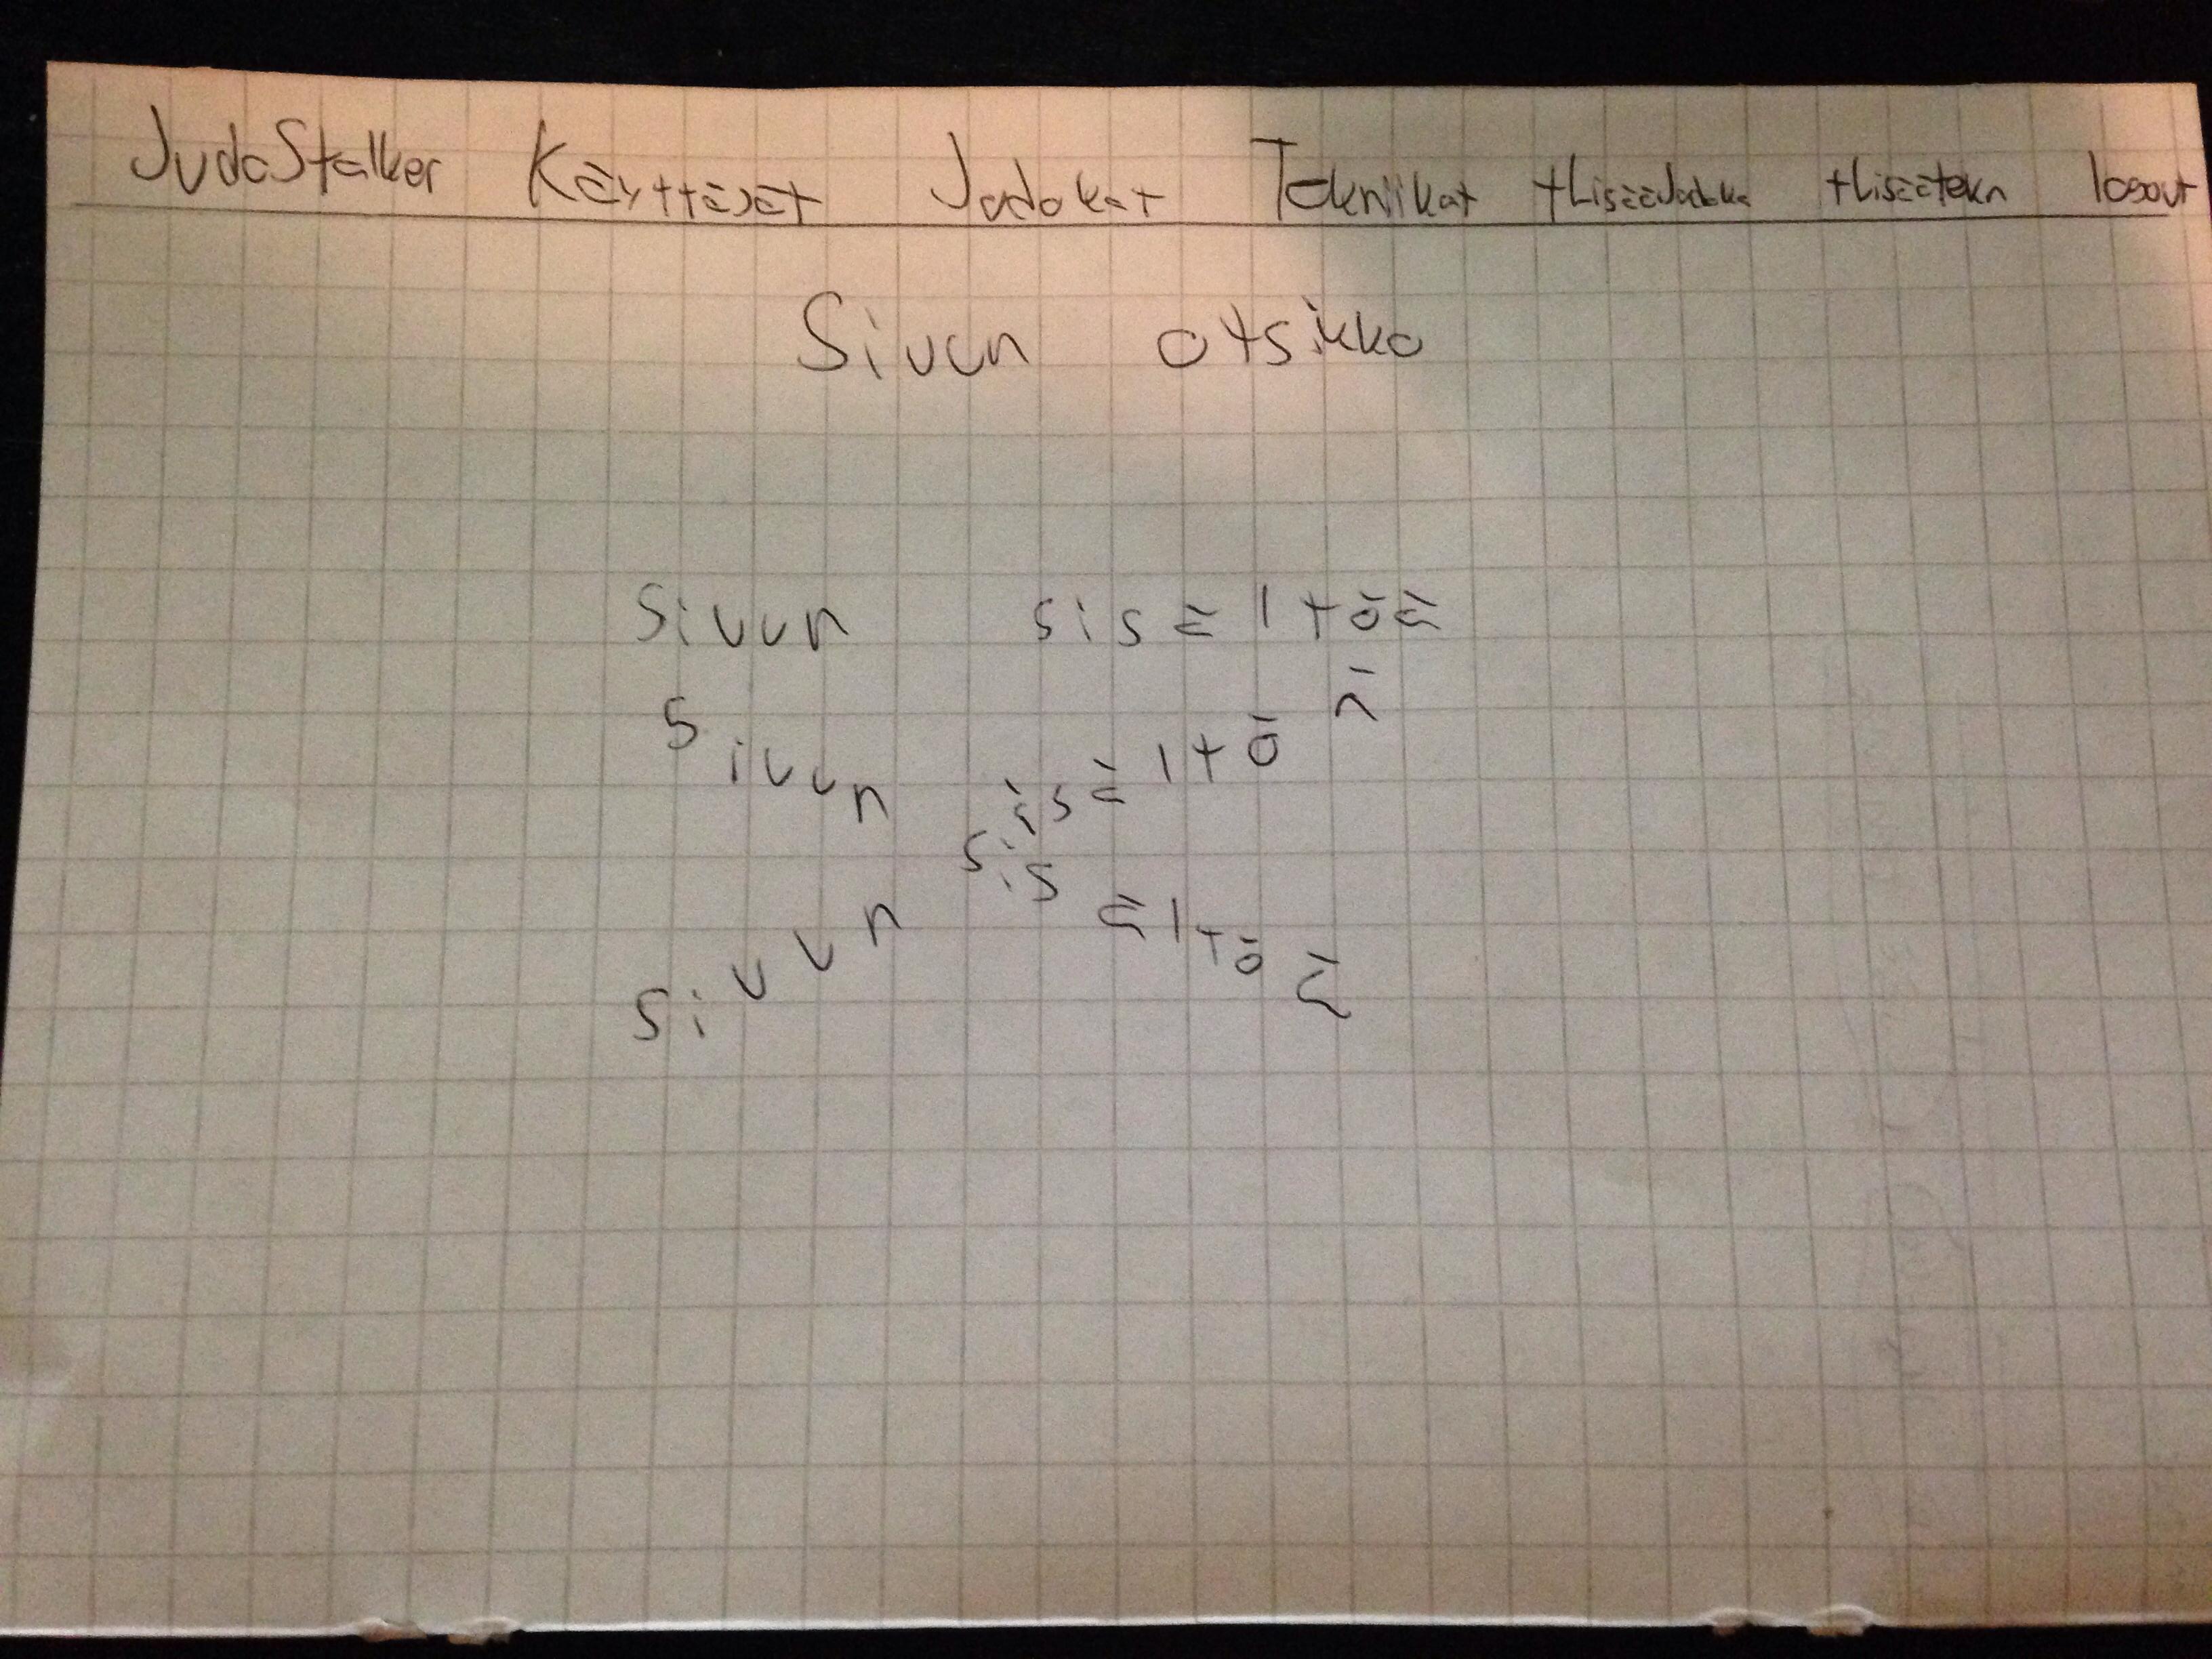 JudoStalker Käyttäjät Judokat Tekniikat +LisääJudoka +Lisäätekn logout
Sivun otsikko
Sivun sisältöä
Sivun sisältöä
Sivun sisältöä